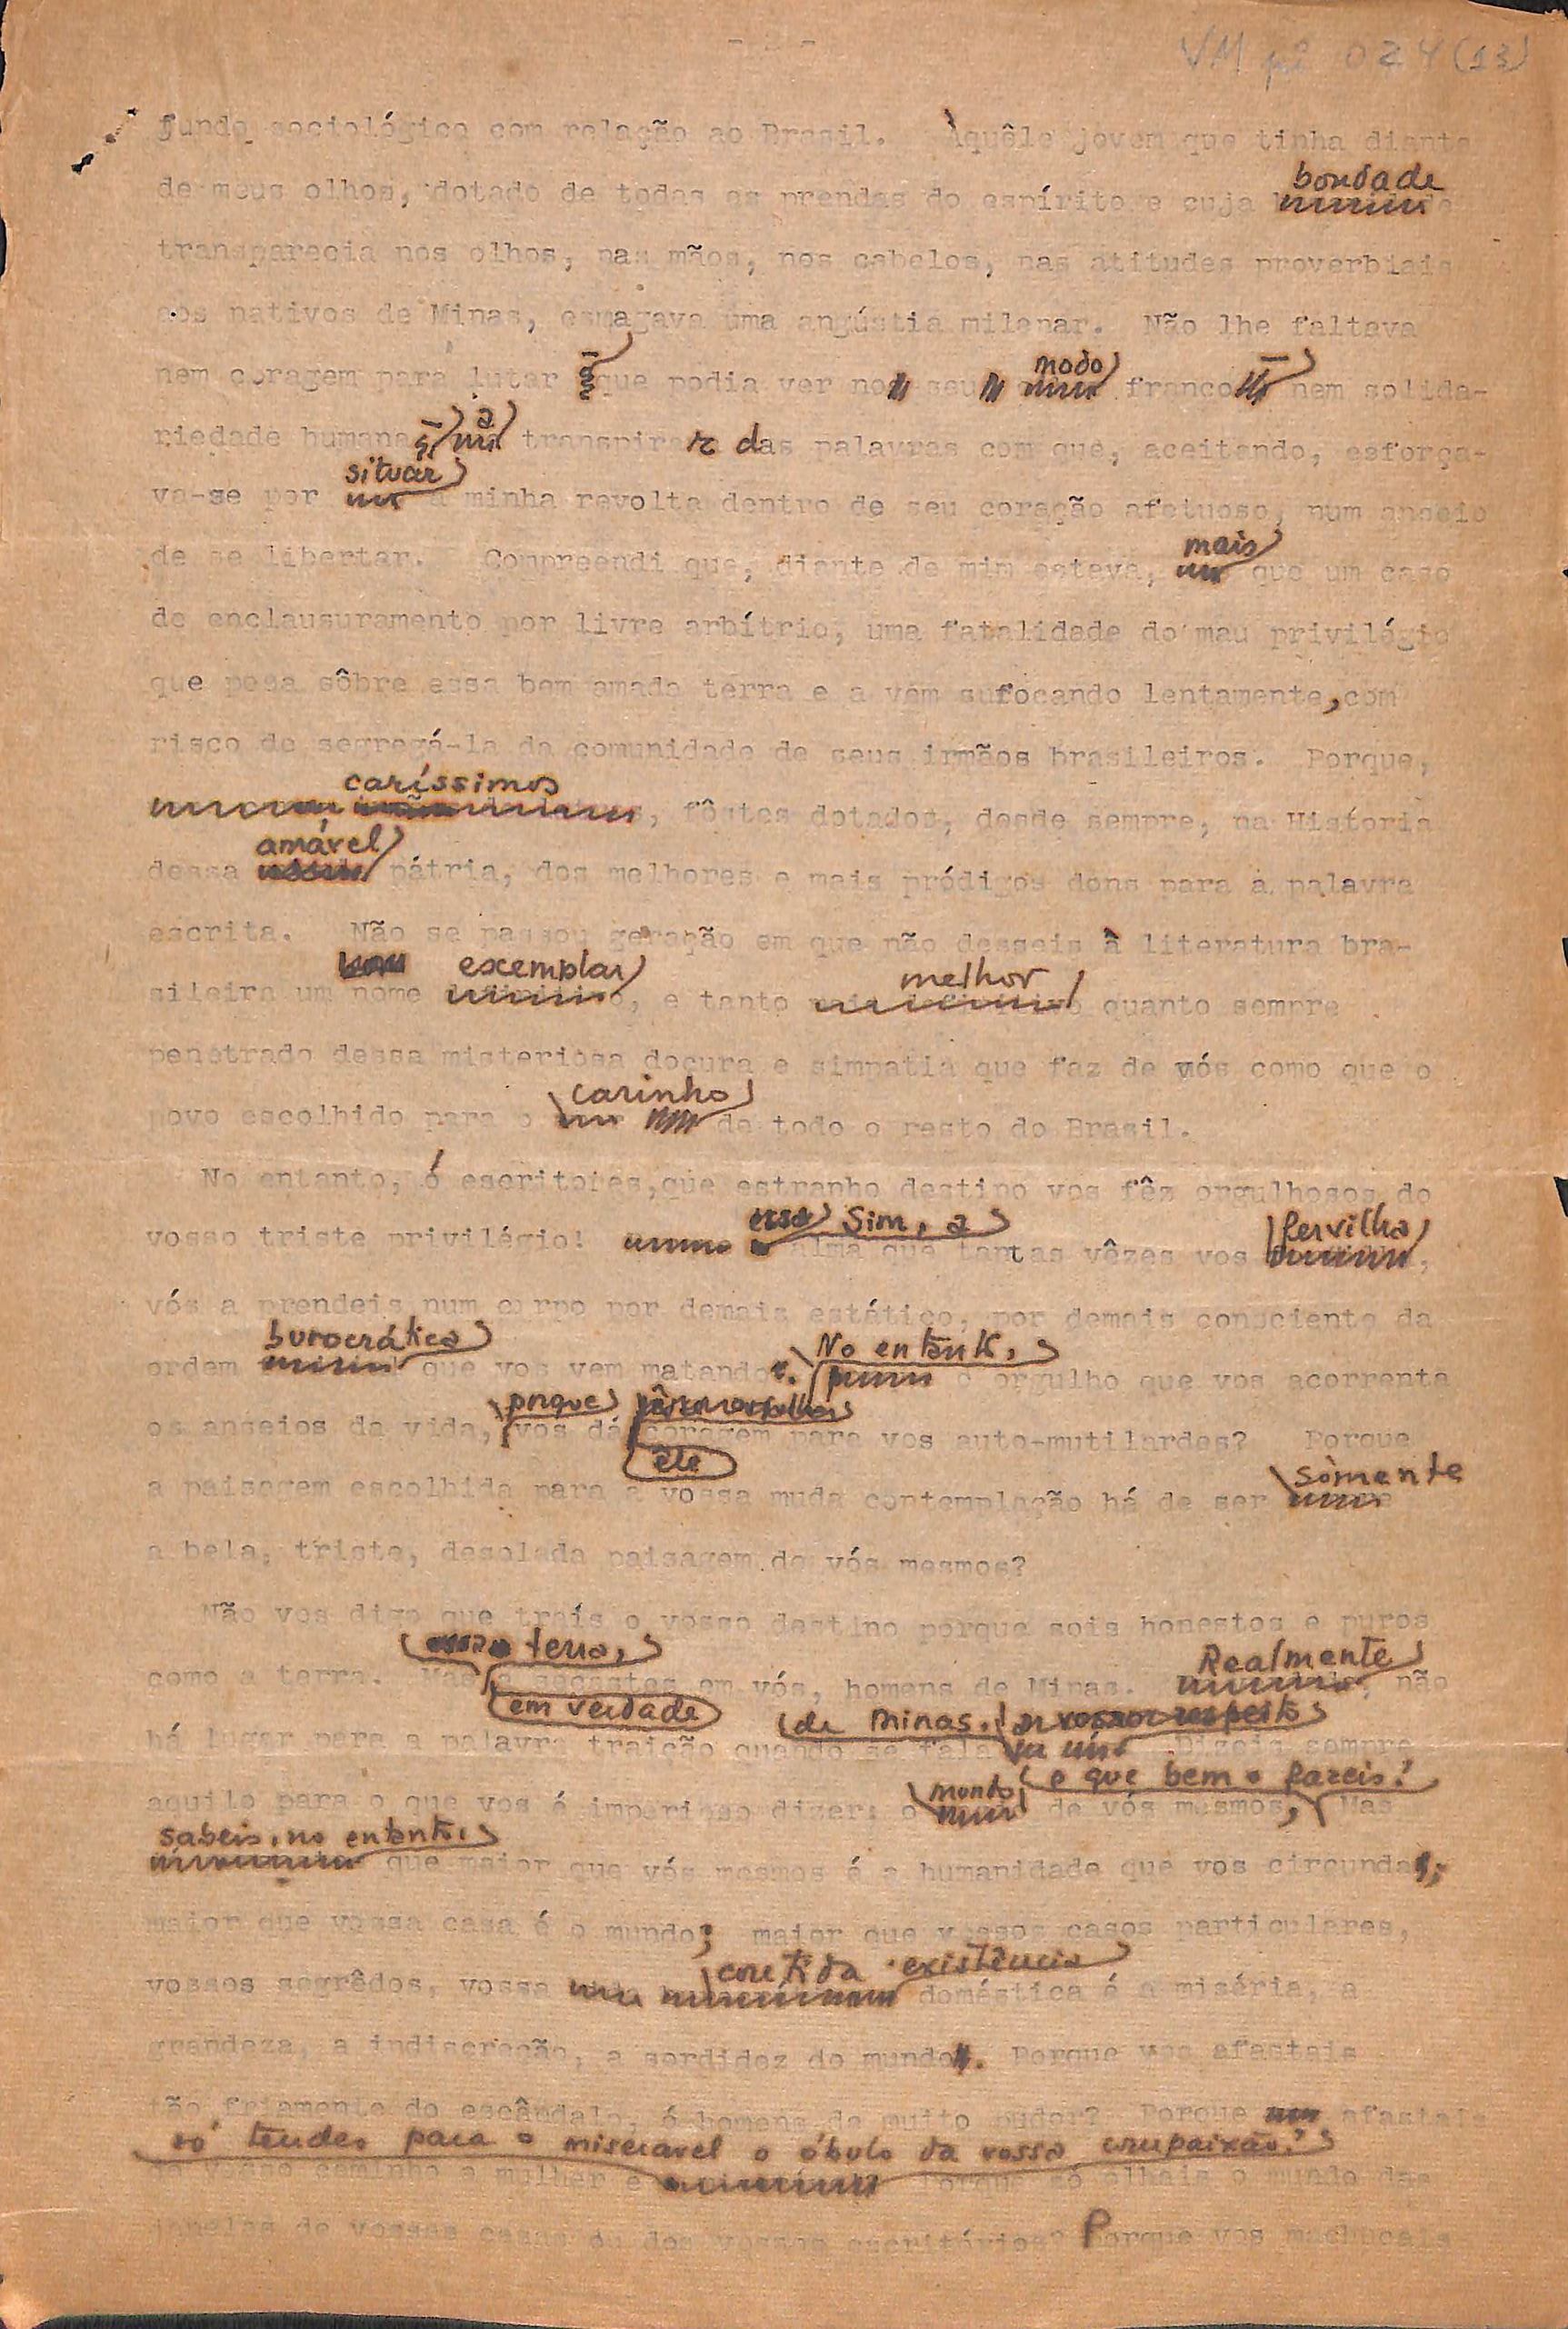 VM 024(13)
fundo sociológico com relação ao Brasil. Àquêle jovem que tinha diante
bondade
de meus olhos, dotado de todas as prendas do espírito e cuja
transparecia nos olhos, nas mãos, nos cabelos, nas atitudes proverbiais
aos nativos de Minas, esmagava uma angústia milenar. Não lhe faltava
modo
nem coragem para lutar — que podia ver no seu franco — nem solida-
a
riedade humana — transpirar das palavras com que, aceitando, esforça-
situar
va-se por a minha revolta dentro de seu coração afetuoso, num anseio
mais
de se libertar. Compreendi que, diante de mim estava, que um caso
de enclausuramento por livre arbítrio, uma fatalidade do mau privilégio
que pesa sôbre essa bem amada terra e a vem sufocando lentamente, com
risco de segregá-la da comunidade de seus irmãos brasileiros. Porque,
caríssimos
, fôstes dotados, desde sempre, na História
amável
dessa pátria, dos melhores e mais pródigos dons para a palavra
escrita. Não se passou geração em que não desseis à literatura bra-
exemplar melhor
sileira um nome , e tanto quanto sempre
penetrado dessa misteriosa doçura e simpatia que faz de vós como que o
carinho
povo escolhido para o de todo o resto do Brasil.
No entanto, ó escritores, que estranho destino vos fêz orgulhosos do
Sim, a fervilha
vosso triste privilégio! alma que tantas vêzes vos ,
vós a prendeis num corpo por demais estático, por demais consciente da
burocrática No entanto,
ordem que vos vem matando. o orgulho que vos acorrenta
porque
os anseios da vida, vos dá coragem para vos auto-mutilardes? Porque
êle
sòmente
a paisagem escolhida para a vossa muda contemplação há de ser
a bela, triste, desolada paisagem de vós mesmos?
Não vos digo que traís o vosso destino porque sois honestos e puros
terra, Realmente
como a terra. Mas a em vós, homens de Minas. , não
em verdade
de Minas.
há lugar para a palavra traição quando se fala Dizeis sempre
mundo e que bem o fazeis!
aquilo para o que vos é imperioso dizer: o de vós mesmos, Mas
sabeis, no entanto,
que maior que vós mesmos é a humanidade que vos circunda;
maior que vossa casa é o mundo; maior que vossos casos particulares,
contida existência
vossos segrêdos, vossa doméstica é a miséria, a
grandeza, a indiscreção, a sordidez do mundo. Porque vos afastais
tão friamente do escândalo, ó homens de muito pudor? Porque afastais
só tendes para o miserável o óbulo da vossa compaixão?
do vosso caminho a mulher e Porque só olhais o mundo das
janelas de vossas casas ou dos vossos escritórios? Porque vos machucais